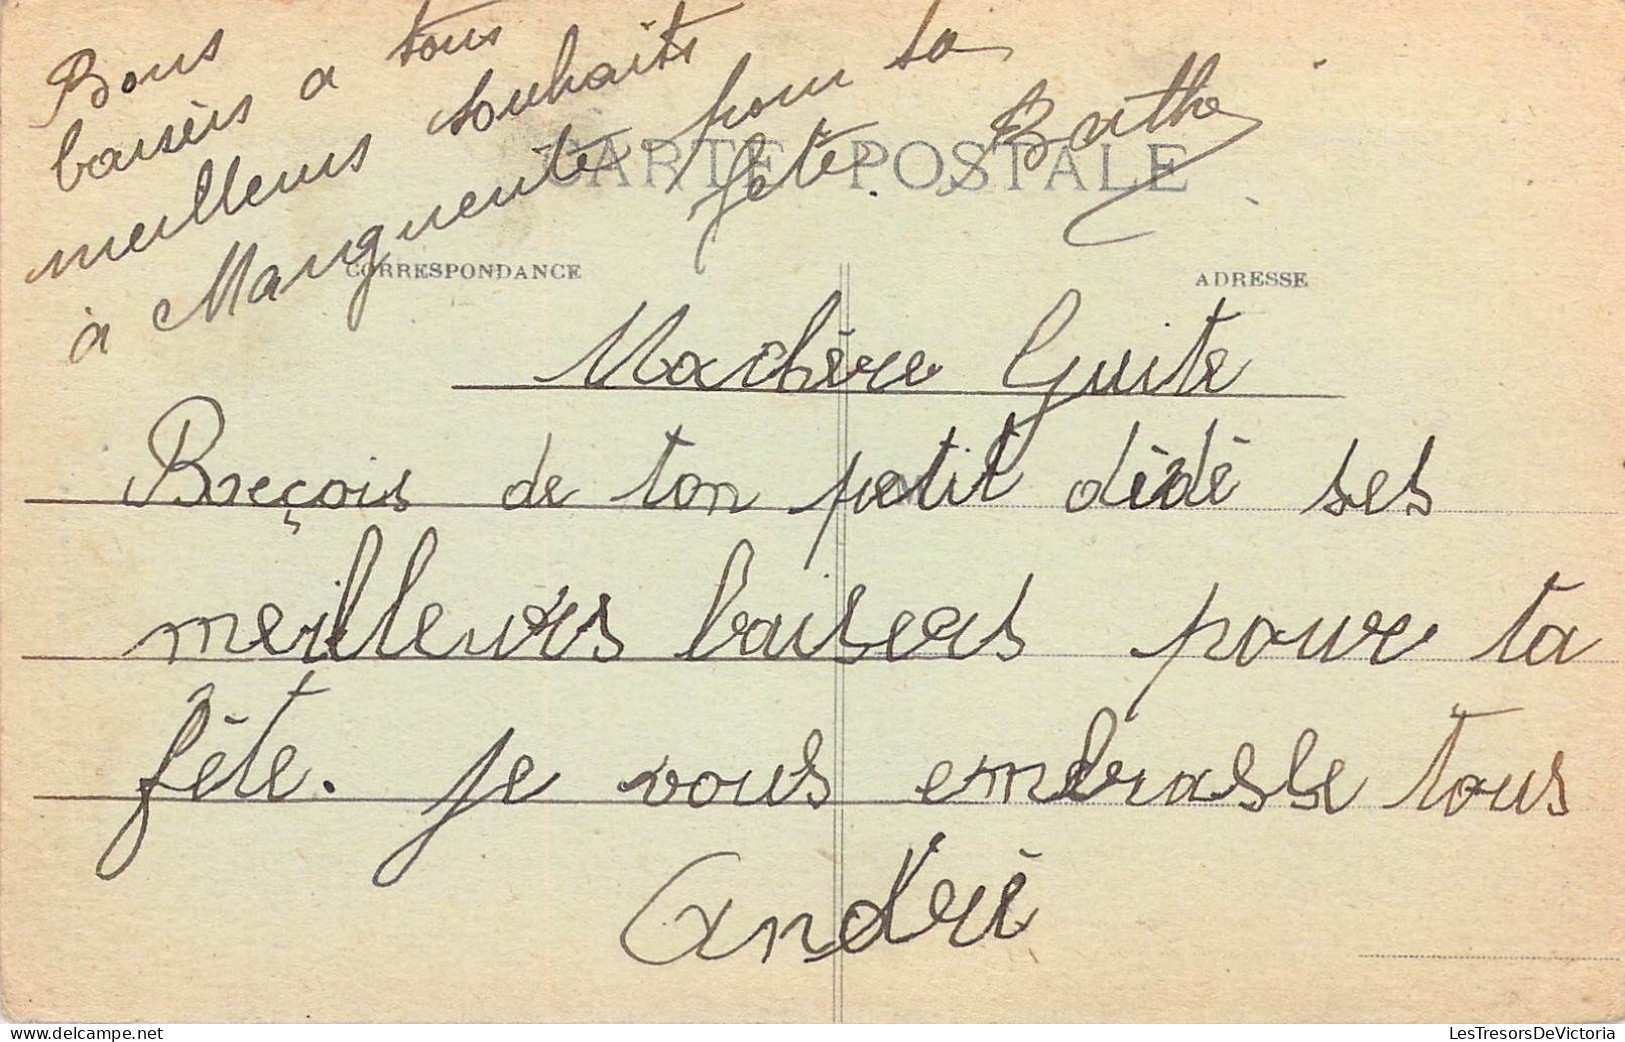 Bons
baisers a tous
meilleurs souhaits
à Marguerite pour sa
fête. Berthe
CARTE POSTALE
CORRESPONDANCE
ADRESSE
Ma chère Guite
Reçois de ton petit dédé ses
meilleurs baisers pour ta
fête. je vous embrasse tous
André
delcampe.net
LesTresorsDeVictoria